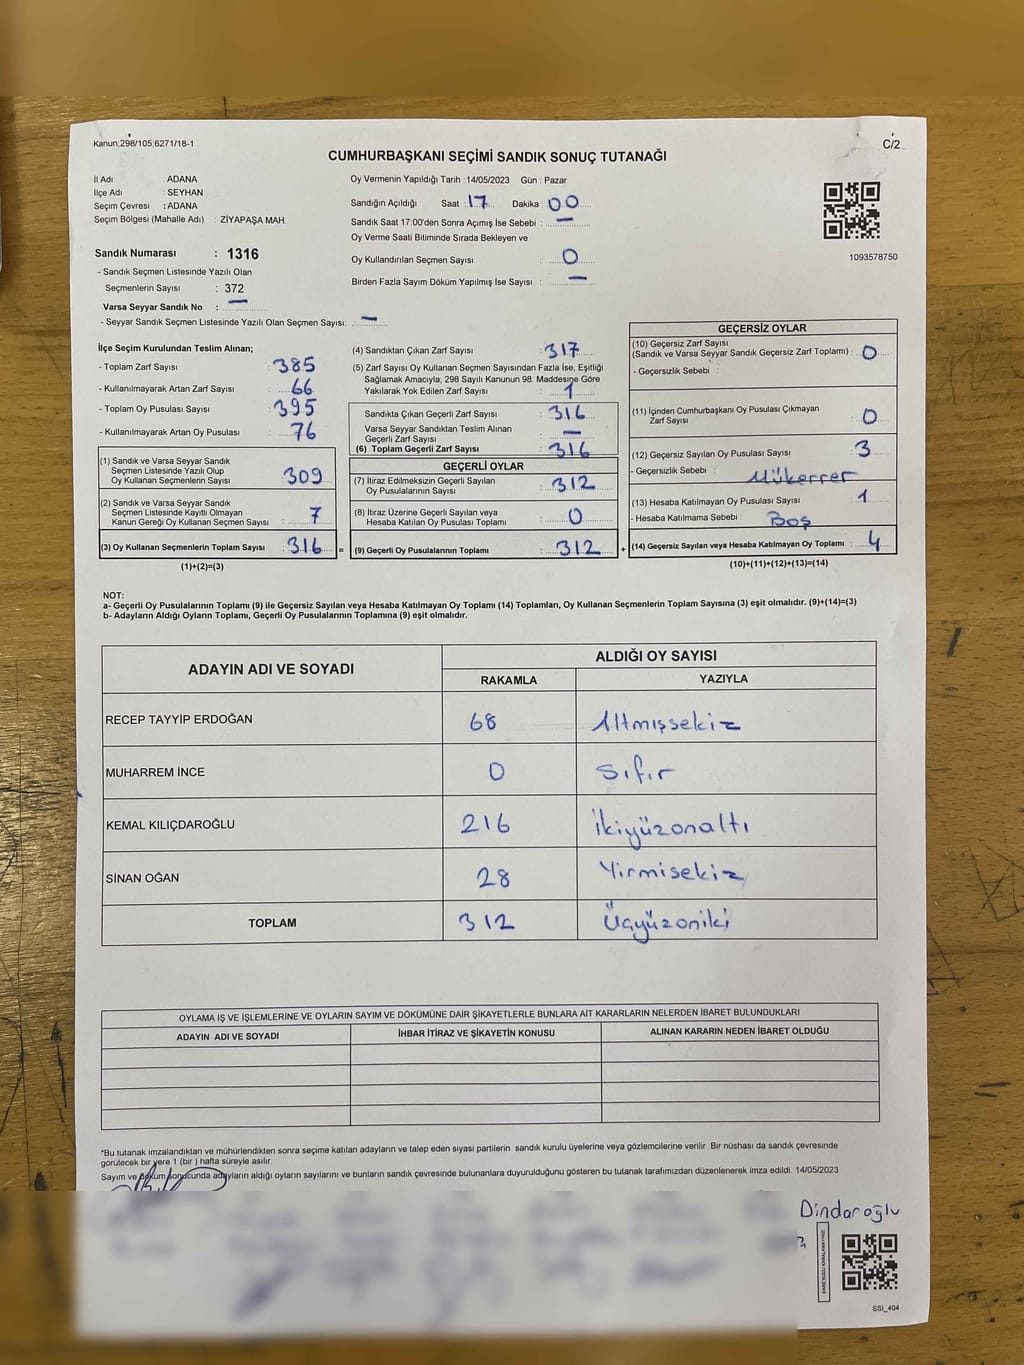 Kanun;298/105,6271/18-1
C/2
CUMHURBAŞKANI SEÇİMİ SANDIK SONUÇ TUTANAĞI
İl Adı : ADANA
İlçe Adı : SEYHAN
Seçim Çevresi : ADANA
Seçim Bölgesi (Mahalle Adı) : ZİYAPAŞA MAH.
Sandık Numarası : 1316
- Sandık Seçmen Listesinde Yazılı Olan
Seçmenlerin Sayısı : 372
Varsa Seyyar Sandık No : —
- Seyyar Sandık Seçmen Listesinde Yazılı Olan Seçmen Sayısı: —
Oy Vermenin Yapıldığı Tarih : 14/05/2023 Gün : Pazar
Sandığın Açıldığı Saat : 17 Dakika : 00
Sandık Saat 17:00'den Sonra Açımış İse Sebebi : —
Oy Verme Saati Bitiminde Sırada Bekleyen ve
Oy Kullandırılan Seçmen Sayısı : 0
Birden Fazla Sayım Döküm Yapılmış İse Sayısı : —
1093578750
İlçe Seçim Kurulundan Teslim Alınan;
- Toplam Zarf Sayısı : 385
- Kullanılmayarak Artan Zarf Sayısı : 66
- Toplam Oy Pusulası Sayısı : 395
- Kullanılmayarak Artan Oy Pusulası : 76
(1) Sandık ve Varsa Seyyar Sandık
Seçmen Listesinde Yazılı Olup
Oy Kullanan Seçmenlerin Sayısı : 309
(2) Sandık ve Varsa Seyyar Sandık
Seçmen Listesinde Kayıtlı Olmayan
Kanun Gereği Oy Kullanan Seçmen Sayısı : 7
(3) Oy Kullanan Seçmenlerin Toplam Sayısı : 316 =
(1)+(2)=(3)
(4) Sandıktan Çıkan Zarf Sayısı : 317
(5) Zarf Sayısı Oy Kullanan Seçmen Sayısından Fazla İse, Eşitliği
Sağlamak Amacıyla; 298 Sayılı Kanunun 98. Maddesine Göre
Yakılarak Yok Edilen Zarf Sayısı : 1
Sandıkta Çıkan Geçerli Zarf Sayısı : 316
Varsa Seyyar Sandıktan Teslim Alınan
Geçerli Zarf Sayısı : —
(6) Toplam Geçerli Zarf Sayısı : 316
GEÇERLİ OYLAR
(7) İtiraz Edilmeksizin Geçerli Sayılan
Oy Pusulalarının Sayısı : 312
(8) İtiraz Üzerine Geçerli Sayılan veya
Hesaba Katılan Oy Pusulası Toplamı : 0
(9) Geçerli Oy Pusulalarının Toplamı : 312 +
GEÇERSİZ OYLAR
(10) Geçersiz Zarf Sayısı
(Sandık ve Varsa Seyyar Sandık Geçersiz Zarf Toplamı) : 0
- Geçersizlik Sebebi :
(11) İçinden Cumhurbaşkanı Oy Pusulası Çıkmayan
Zarf Sayısı : 0
(12) Geçersiz Sayılan Oy Pusulası Sayısı : 3
- Geçersizlik Sebebi : Mükerrer
(13) Hesaba Katılmayan Oy Pusulası Sayısı : 1
- Hesaba Katılmama Sebebi : Boş
(14) Geçersiz Sayılan veya Hesaba Katılmayan Oy Toplamı : 4
(10)+(11)+(12)+(13)=(14)
NOT:
a- Geçerli Oy Pusulalarının Toplamı (9) ile Geçersiz Sayılan veya Hesaba Katılmayan Oy Toplamı (14) Toplamları, Oy Kullanan Seçmenlerin Toplam Sayısına (3) eşit olmalıdır. (9)+(14)=(3)
b- Adayların Aldığı Oyların Toplamı, Geçerli Oy Pusulalarının Toplamına (9) eşit olmalıdır.
ADAYIN ADI VE SOYADI ALDIĞI OY SAYISI
RAKAMLA YAZIYLA
RECEP TAYYİP ERDOĞAN 68 Altmışsekiz
MUHARREM İNCE 0 Sıfır
KEMAL KILIÇDAROĞLU 216 İkiyüzonaltı
SİNAN OĞAN 28 Yirmisekiz
TOPLAM 312 Üçyüzoniki
OYLAMA İŞ VE İŞLEMLERİNE VE OYLARIN SAYIM VE DÖKÜMÜNE DAİR ŞİKAYETLERLE BUNLARA AİT KARARLARIN NELERDEN İBARET BULUNDUKLARI
ADAYIN ADI VE SOYADI İHBAR İTİRAZ VE ŞİKAYETİN KONUSU ALINAN KARARIN NEDEN İBARET OLDUĞU
*Bu tutanak imzalandıktan ve mühürlendikten sonra seçime katılan adayların ve talep eden siyasi partilerin sandık kurulu üyelerine veya gözlemcilerine verilir. Bir nüshası da sandık çevresinde
görülecek bir yere 1 (bir ) hafta süreyle asılır.
Sayım ve döküm sonucunda adayların aldığı oyların sayılarını ve bunların sandık çevresinde bulunanlara duyurulduğunu gösteren bu tutanak tarafımızdan düzenlenerek imza edildi. 14/05/2023
Dindaroğlu
SSI_404